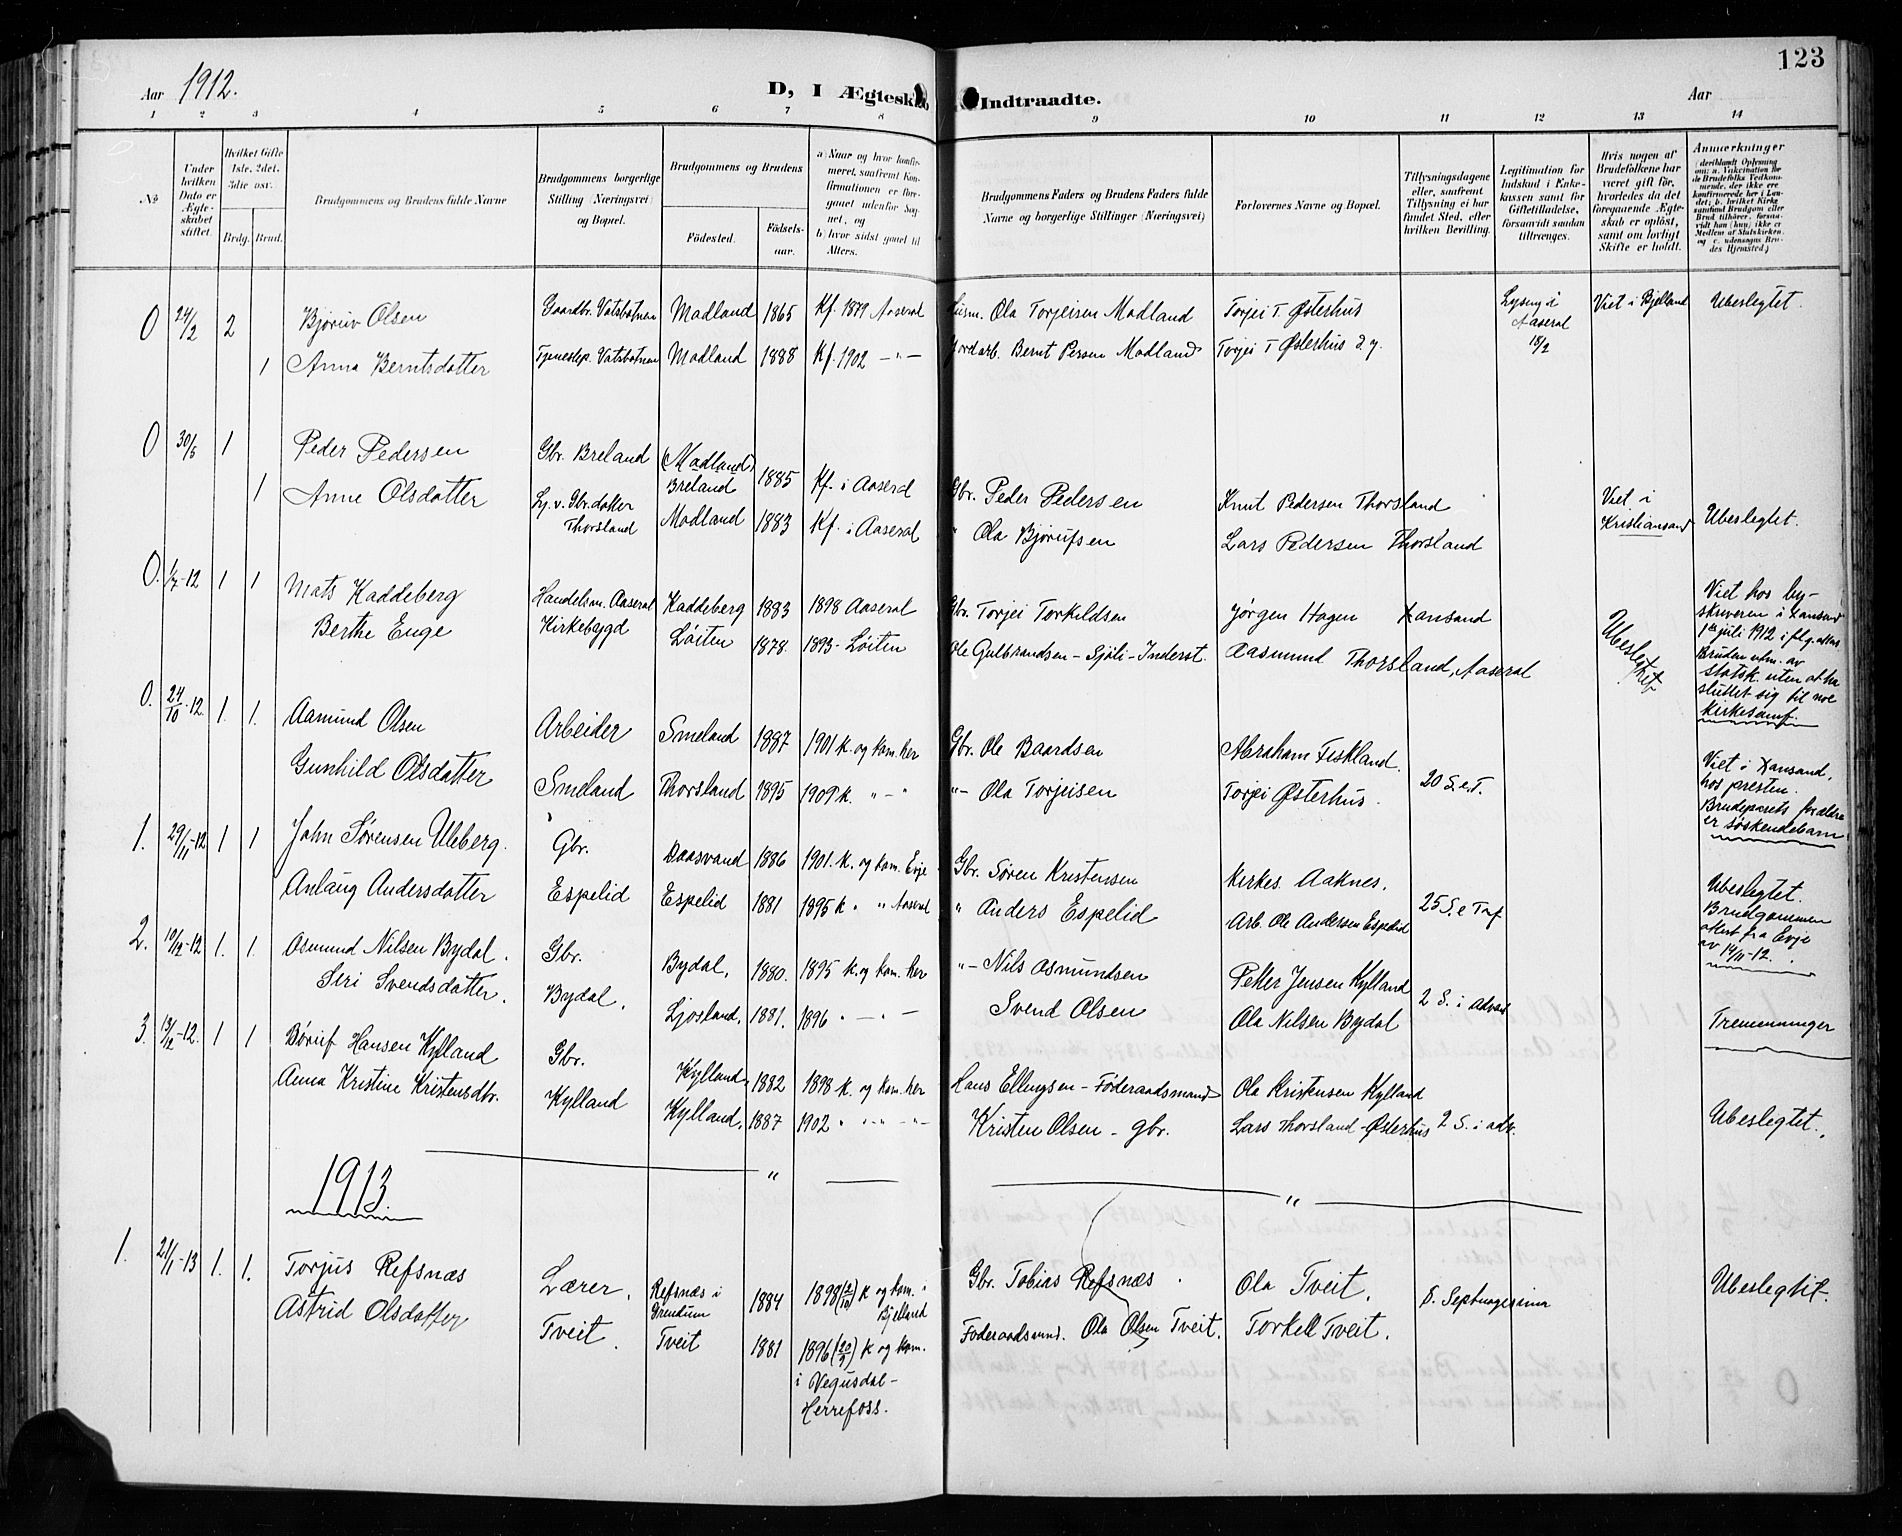 Aar 1912. D, I Ægtesk Indtraadte. Aar 123
1 2 3 4 5 6 7 8 9 10 11 12 13 14
No
Under hvilken Dato er Ægteskabet stiftet.
Hvilket Gifte 1ste, 2det, 3die osv.
Brdg. Brud.
Brudgommens og Brudens fulde Navne
Brudgommens borgerlige Stilling (Næringsvei) og Bopæl.
Brudgommens og Brudens
Fødested. Fødselsaar.
a) Naar og hvor konfirmeret, saafremt Konfirmationen er foregaaet udenfor Sognet, og
b) hvor sidst gaaet til Alters.
Brudgommens Faders og Brudens Faders fulde Navne og borgerlige Stillinger (Næringsvei)
Forlovernes Navne og Bopæl.
Tillysningsdagene eller, saafremt Tillysning ei har fundet Sted, efter hvilken Bevilling.
Legitimation for Indskud i Enkekassen samt for Giftetilladelse, forsaavidt saadan tiltrænges.
Hvis nogen af Brudefolkene har været gift før, hvorledes da det foregaaende Ægteskab er opløst, samt om lovligt Skifte er holdt.
Anmærkninger
(deriblandt Oplysning om: a. Vakcination for de Brudefolks Vedkommende, der ikke ere konfirmerede her i Landet; b. hvilket Kirkesamfund Brudgom eller Brud tilhører, forsaavidt han (hun) ikke er Medlem af Statskirken, og c. udensogns Brudes Hjemsted.)
0 24/2 2 Bjøruv Olsen Gaardbr. Vatsbotnen Madland 1865 Kf. 1879 Aaseral Husm. Ola Torjeisen Madland Torjei T Østerhus Lysing i Aaseral 18/2 Viet i Bjelland Ubeslegtet.
1 Anna Berntsdatter Tjenestep. Vatsbotnen Madland 1888 Kf. 1902 — " — Jordarb. Bernt Persen Madland Torjei T Østerhus d.y.
0 30/5 1 Peder Pedersen Gbr. Breland (Madland) Breland 1885 Kf. i Aaseral Gbr. Peder Pedersen Knut Pedersen Thorsland Viet i Kristiansand Ubeslegtet.
1 Anne Olsdatter Ly. v. Gbr.datter Thorsland Madland 1883 Kf. i Aaseral " Ola Bjørufsen Lars Pedersen Thorsland
0. 1/7-12 1 1 Mats Kaddeberg Handelsm. Aaseral Kaddeberg 1883 1898 Aaseral Gbr. Torjei Torkildsen Jørgen Hagen Kansand Ubeslegtet
Berthe Enge Kirkebygd Løiten 1878. 1893- Løiten Ole Gulbrandsen - Sjøli - Inderst. Aasmund Thorsland, Aaseral
Viet hos byskriveren i Kansand 1ste juli 1912 i flg. attest Bruden utm. av statsk. uten at ha sluttet sig til noe kirkesamf.
0. 24/10-12. 1. 1. Aamund Olsen Arbeider Smeland 1887 1901 k. og kom. her Gbr. Ole Baardsen Abraham Fiskland.
Gunhild Olsdatter Smeland Thorsland 1895 1909 k. " - " "- Ola Torjeisen Torjei Østerhus. 20 S. e. T.
Viet i Kansand, hos presten. Brudeparets forældre er søskendebarn
1. 29/11-12. 1 1 John Sørensen Uleberg. Gbr. Daasvand 1886 1901. k. og kom. Evje Gbr. Søren Kristensen Kirkes. Aaknes.
Anlaug Andersdatter Espelid Espelid 1881 1895 k " " Aaseral " Anders Espelid Arb. Ole Andersen Espelid 25 S. e Trf
Ubeslegtet. Brudgommen attest fra Evje av 14/11-12.
2. 10/12-12 1. 1. Osmund Nilsen Bydal. Gbr. Bydal. 1880. 1895 k. og kom. her "- Nils Osmundsen Petter Jensen Kylland
Siri Svendsdatter. Bydal. Ljosland. 1881. 1896 " — " — Svend Olsen Ola Nilsen Bydal 2 S. i advent Tremenninger
3. 13/12-12. 1 1 Børuf Hansen Kylland Gbr. Kylland 1882 1898 k. og kom. her Hans Ellingsen - Føderaadsmand Ola Kristensen Kylland
Anna Kristine Kristensdtr. Kylland Kylland. 1887 1902 " "-" -"- Kristen Olsen - gbr. Lars Thorsland - Østerhus 2 S. i adv. Ubeslegtet.
" "
1913.
1. 21/1-13 1. 1. Torjus Refsnæs Lærer. Refsnæs i Grendum 1884 1898 (2/10) k og kom. i Bjelland Gbr. Tobias Refsnæs. Ola Tveit. S. Septuagesima Ubeslegtet.
Astrid Olsdatter Tveit. Tveit 1881 1896 (20/9) k og kom. i Vegusdal - Herrefoss. Føderaadsmnd. Ola Olsen Tveit. Torkell Tveit.